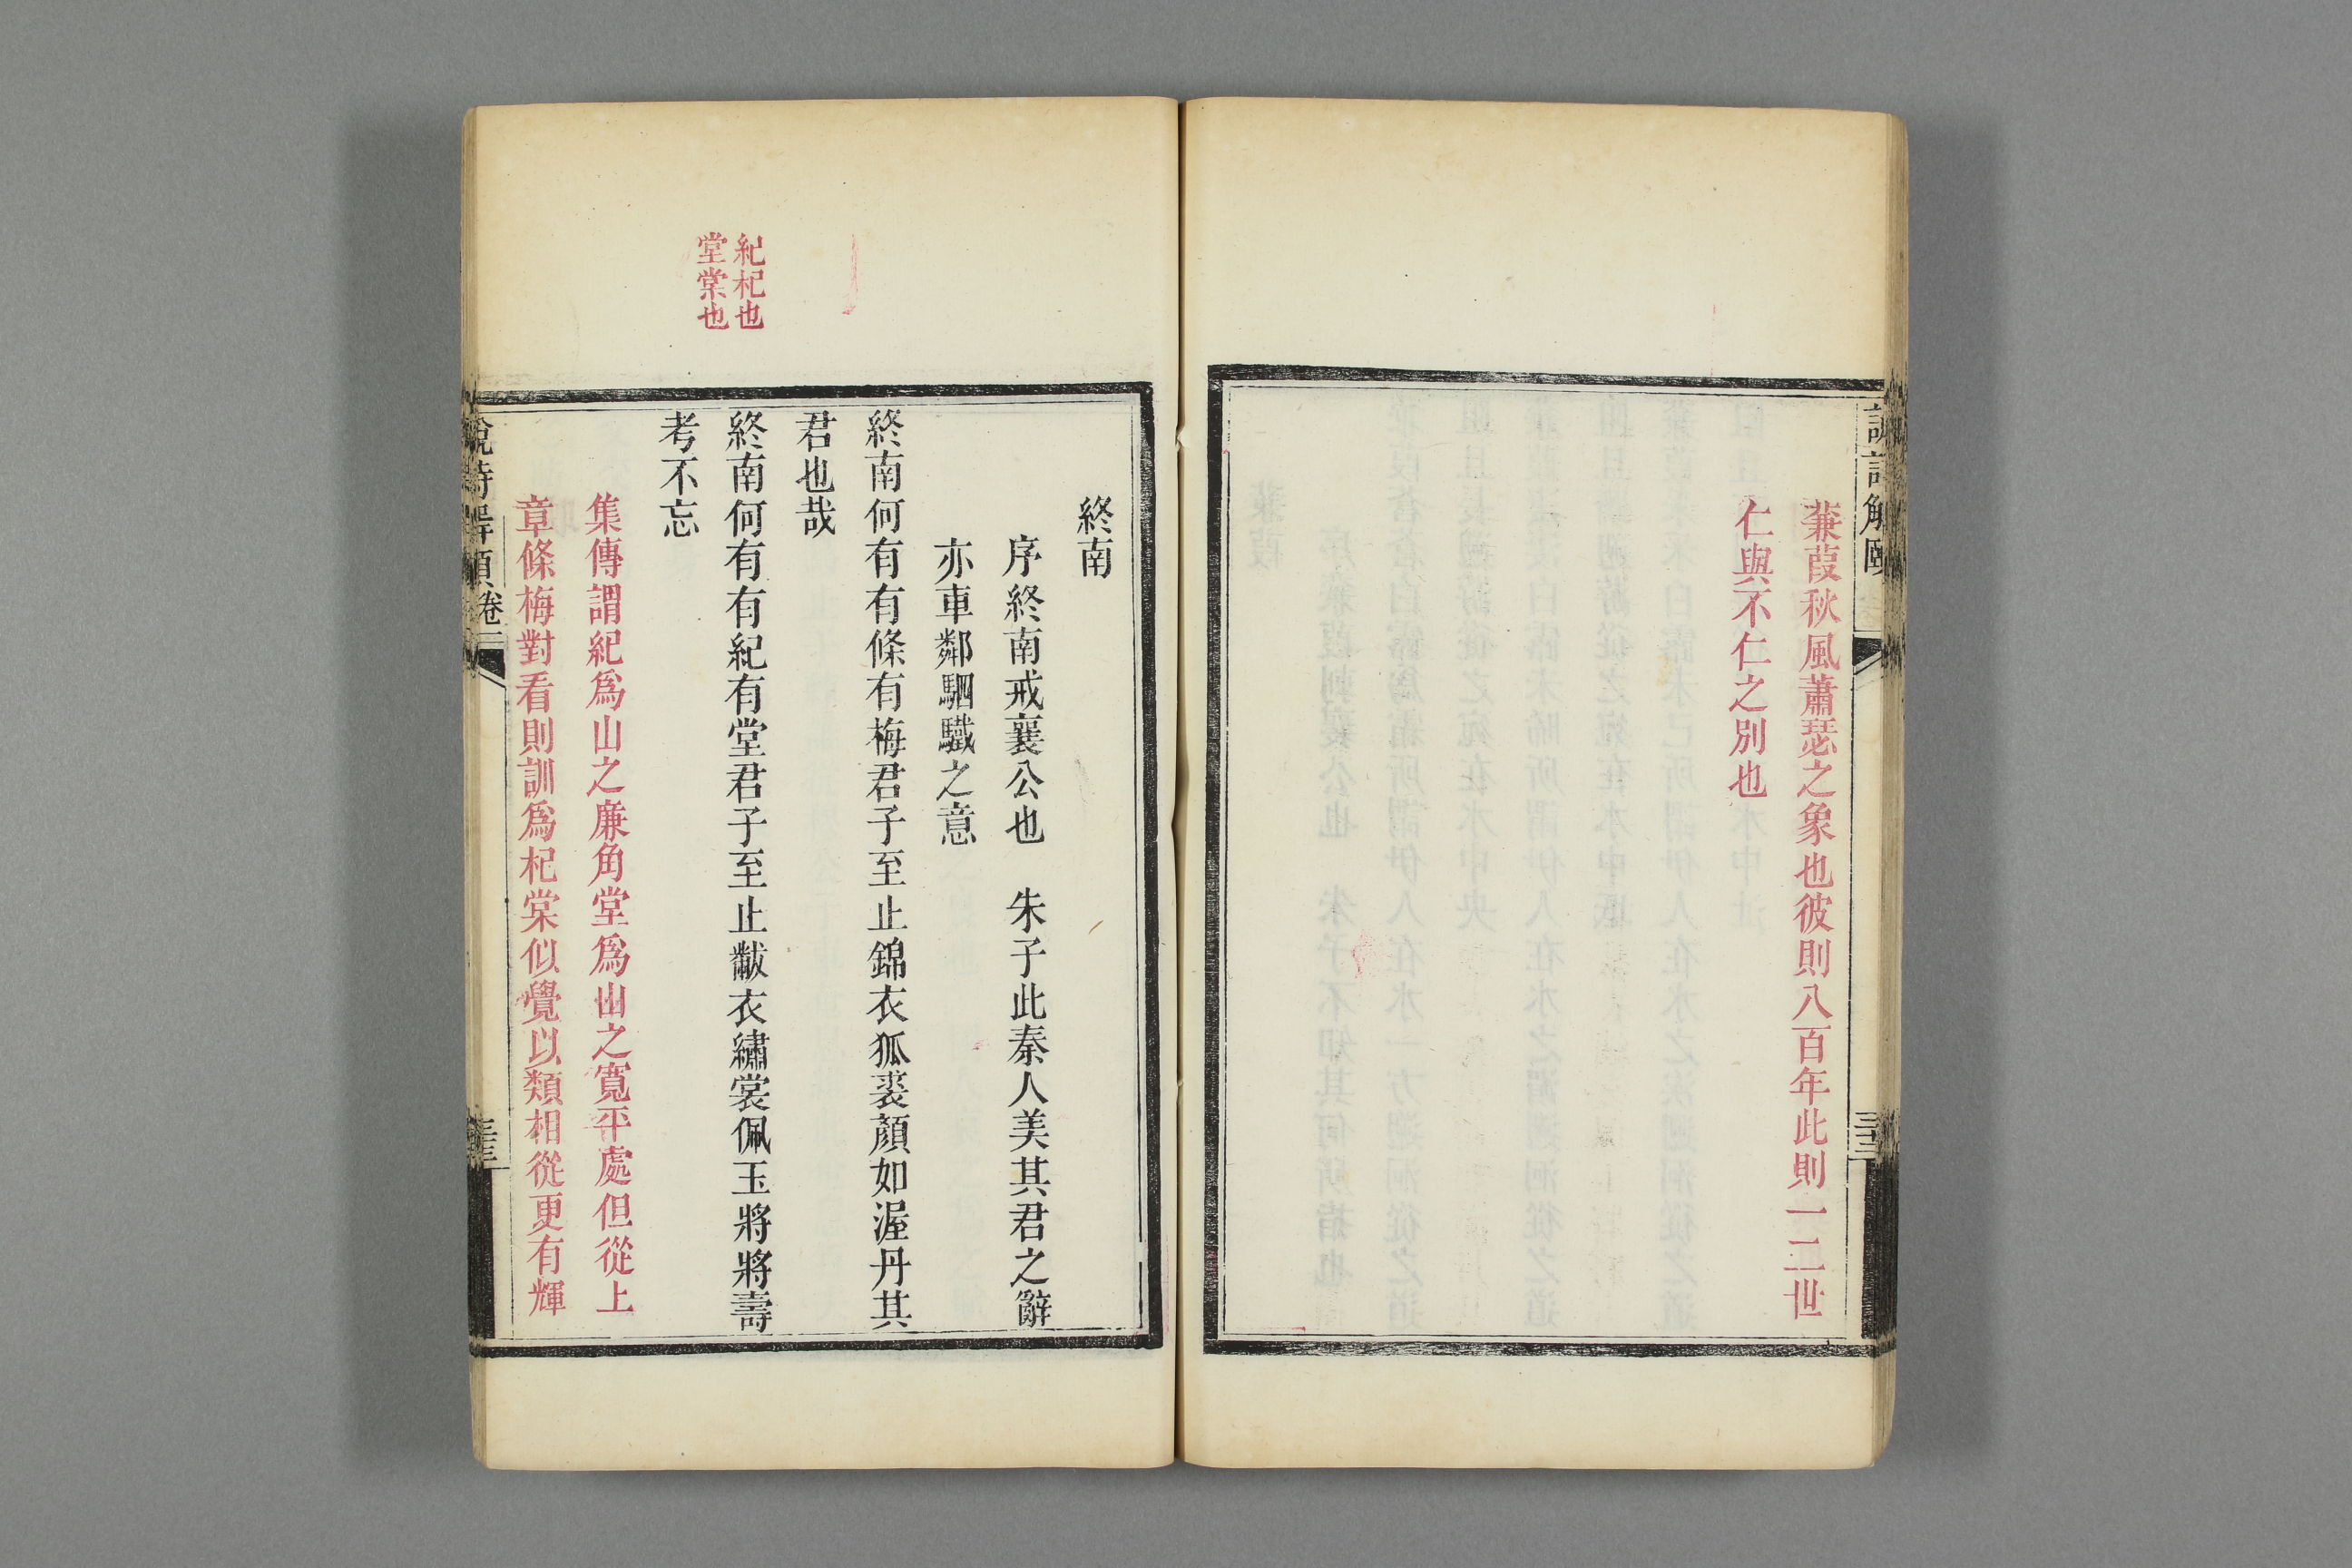 蒹葭秋風蕭瑟之象也彼則八百年此則一二世
仁與不仁之別也
終南
序終南戒襄公也　朱子此秦人美其君之辭
亦車鄰駟驖之意
終南何有有條有梅君子至止錦衣狐裘顏如渥丹其
君也哉
終南何有有紀有堂君子至止黻衣繡裳佩玉將將壽
考不忘
紀杞也
堂棠也
集傳謂紀爲山之廉角堂爲山之寬平處但從上
章條梅對看則訓爲杞棠似覺以類相從更有輝
說詩解頤 卷二